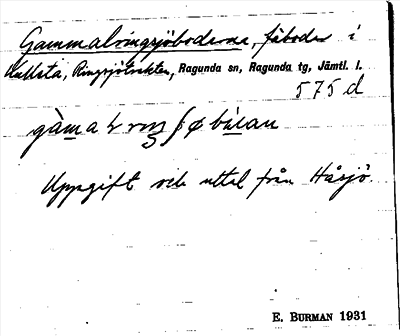 Gammalringsjöbodarna, fäbodar i
Kullsta, Ringsjötrakten, Ragunda sn, Ragunda tg, Jämtl. l.
575 d
Uppgift och uttal från Håsjö.
E. BURMAN 1931